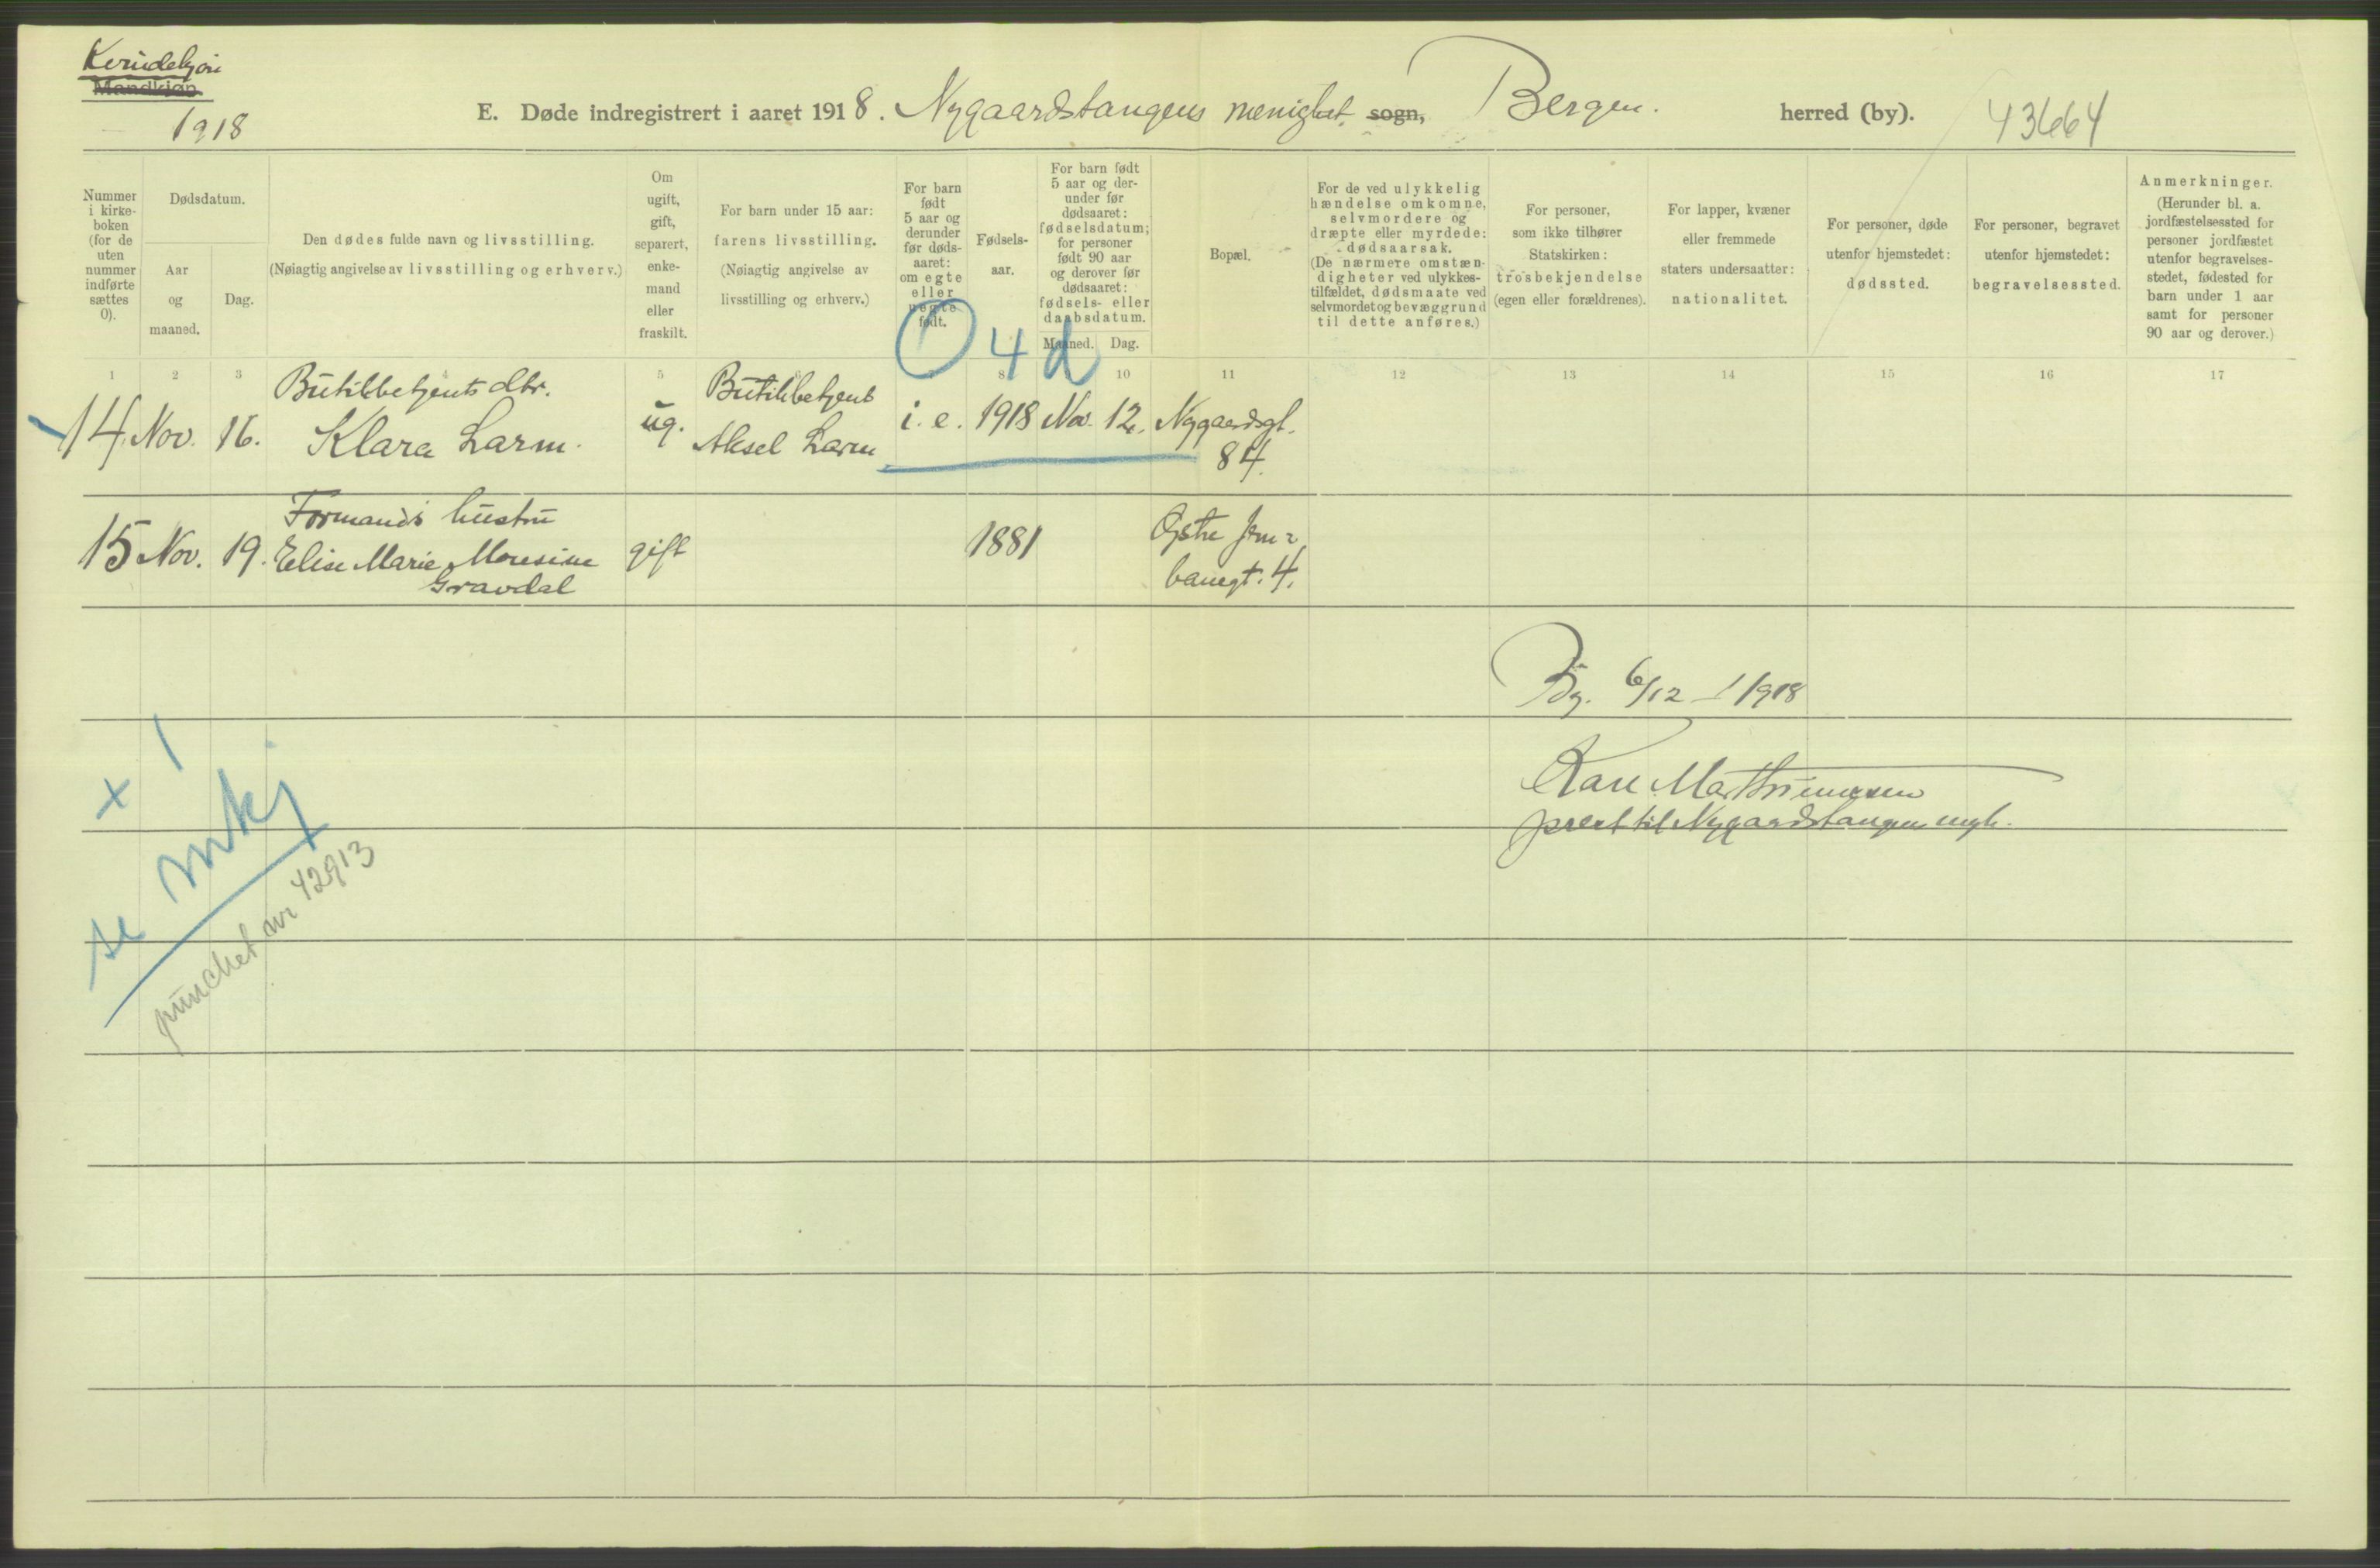 Kvindekjøn
Mandkjøn
1918
E. Døde indregistrert i aaret 1918. Nygaardstangens menighet sogn, Bergen. herred (by). 43664
Nummer i kirke-boken (for de uten nummer indførte sættes 0).
Dødsdatum.
Aar og maaned.
Dag.
Den dødes fulde navn og livsstilling.
(Nøiagtig angivelse av livsstilling og erhverv.)
Om ugift, gift, separert, enke-mand eller fraskilt.
For barn under 15 aar:
farens livsstilling.
(Nøiagtig angivelse av
livsstilling og erhverv.)
For barn født 5 aar og derunder før døds-aaret: om egte eller uegte født.
Fødsels-aar.
For barn født 5 aar og der-under før dødsaaret: fødselsdatum; for personer født 90 aar og derover før dødsaaret: fødsels- eller daabsdatum.
Maaned. Dag.
Bopæl.
For de ved ulykkelig hændelse omkomne, selvmordere og dræpte eller myrdede: dødsaarsak. (De nærmere omstæn-digheter ved ulykkes-tilfældet, dødsmaate ved selvmordet og bevæggrund til dette anføres.)
For personer, som ikke tilhører Statskirken: trosbekjendelse (egen eller forældrenes).
For lapper, kvæner eller fremmede staters undersaatter: nationalitet.
For personer, døde utenfor hjemstedet: dødssted.
For personer, begravet utenfor hjemstedet: begravelsessted.
Anmerkninger. (Herunder bl. a. jordfæstelsessted for personer jordfæstet utenfor begravelses-stedet, fødested for barn under 1 aar samt for personer 90 aar og derover.)
4 d
1 2 3 4 5 8 10 11 12 13 14 15 16 17
Butikbetjents dtr. Butikbetjent
14. Nov. 16. Klara Larm. ug. Aksel Larm i. e. 1918 Nov. 12. Nygaardsgt.
84.
Formands hustru
15 Nov. 19. Elise Marie Monsine gift 1881 Østre Jern-
Gravdal banegt. 4.
Bg. 6/12 - 1918
x 1
prest til Nygaardstangen mgh.
se mkj
punchet nr 42913